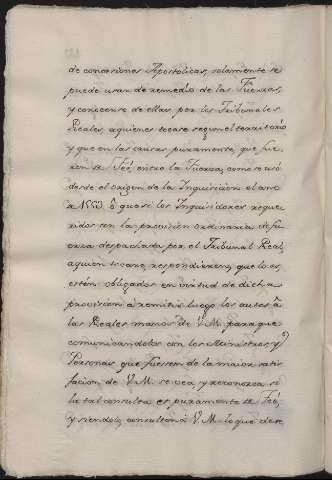 de concesiones Apostolicas, solamente se
puede usar de remedio de las Fuerzas,
y conocerse de ellas por los Tribunales
Reales, aquienes tocase segun el territorio
y que en las causas puramente, que fue
ren de Feé, en esto la Fuerza, como se usó
desde el origen de la Inquisicion el ano
de 1553 ô que si los Inquisidores reque
ridos con la provision ordinaria de fu
erza despachada por el Tribunal Real,
aquien tocare, respondieren, que lo es,
estén obligados en virtud de dicha
provision à remitir luego los autos â
las Reales manos de V.M. para que
comunicandolos con los Ministros, y
Personas que fuesen de la maior satis
facion de V.M. se vea, y reconozca si
la tal consulta es puramente de Feé,
y siendolo, consulten à V.M. lo que de se